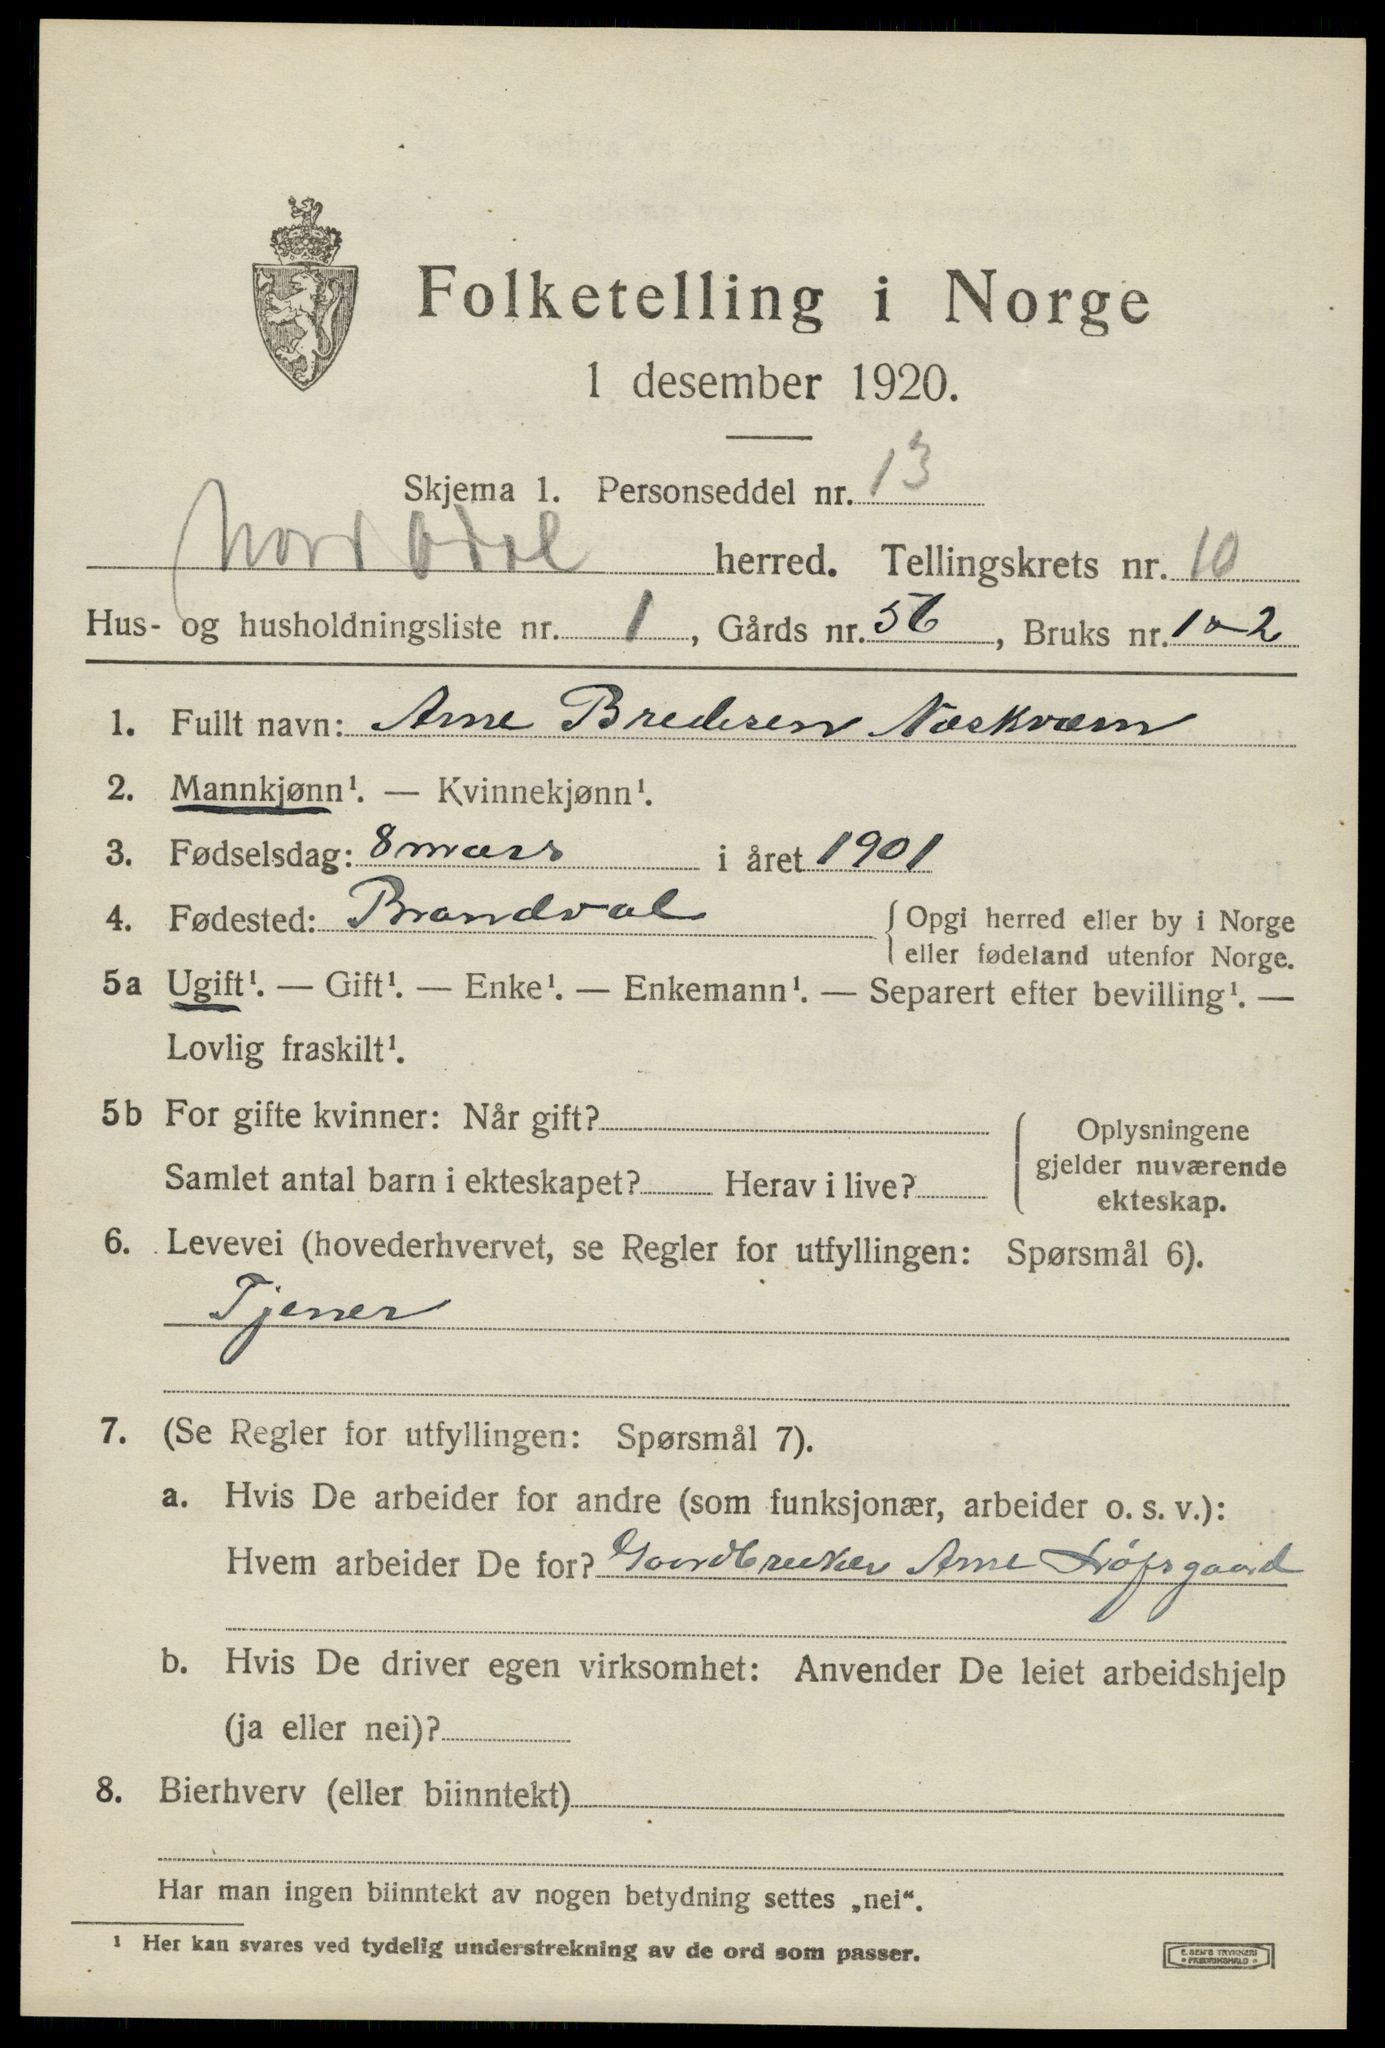 Folketelling i Norge
1 desember 1920.
Skjema 1. Personseddel nr. 13
Nord Odal herred. Tellingskrets nr. 10
Hus- og husholdningsliste nr. 1, Gårds nr. 56, Bruks nr. 1 o 2
1. Fullt navn: Arne Bredesen Næskværn
2. Mannkjønn¹. — Kvinnekjønn¹.
3. Fødselsdag: 8 mars i året 1901
4. Fødested: Brandval {Opgi herred eller by i Norge
eller fødeland utenfor Norge.
5a Ugift¹. — Gift¹. — Enke¹. — Enkemann¹. — Separert efter bevilling¹. —
Lovlig fraskilt¹.
5b For gifte kvinner: Når gift?
Samlet antal barn i ekteskapet? Herav i live?
Oplysningene
gjelder nuværende
ekteskap.
6. Levevei (hovederhvervet, se Regler for utfyllingen: Spørsmål 6).
Tjener
7. (Se Regler for utfyllingen: Spørsmål 7).
a. Hvis De arbeider for andre (som funksjonær, arbeider o. s. v.):
Hvem arbeider De for? Gaardbruker Arne Løfsgaard
b. Hvis De driver egen virksomhet: Anvender De leiet arbeidshjelp
(ja eller nei)?
8. Bierhverv (eller biinntekt)
Har man ingen biinntekt av nogen betydning settes „nei“.
¹ Her kan svares ved tydelig understrekning av de ord som passer.
E. SEM'S TRYKKERI
FREDRIKSHALD